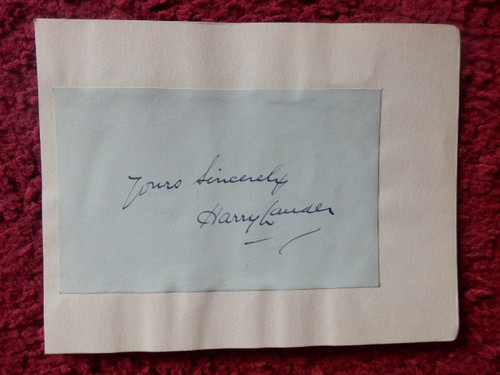 Yours Sincerely
Harry Lauder